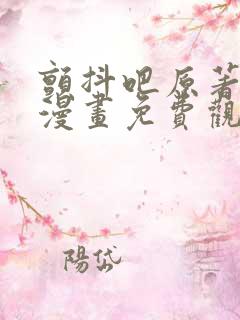 顫抖吧原著
漫畫免費觀
陽岱